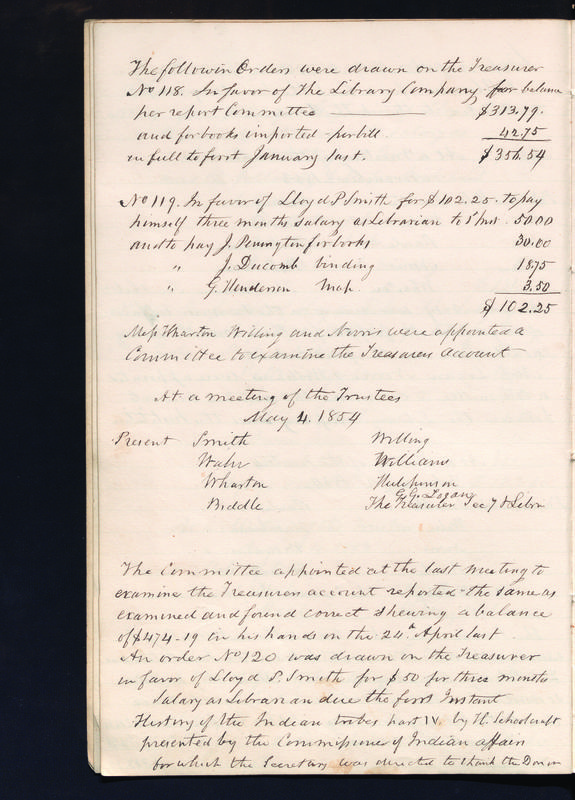 The followin Orders were drawn on the Treasurer
No 118. In favor of The Library Company for balance
per report Committee $313.79.
and for books imported per bill 42.75
in full to first January last. $356.54
No 119. In favor of Lloyd P Smith for $102.25 to pay
himself three months salary as Librarian to 1st inst 50.00
and to pay J. Penington for books 30.00
" J. Ducomb binding 18.75
" G. Henderson Map 3.50
$102.25
Mess Wharton Willing and Norris were appointed a
Committee to examine the Treasurers account
At a meeting of the Trustees
May 4. 1854
Present Smith Willing
Waln Williams
Wharton Hutchinson
G.G. Logan
Biddle The Treasurer Secy & Libra
The Committee appointed at the last meeting to
examine the Treasurers account reported the same as
examined and found correct shewing a balance
of $474-19 in his hands on the 24th April last
An order No 120 was drawn on the Treasurer
in favor of Lloyd P. Smith for $50 for three months
Salary as Librarian due the first Instant
History of the Indian tribes part IV by H. Schoolcraft
presented by the Commissioner of Indian affairs
for which the Secretary was directed to thank the Donor